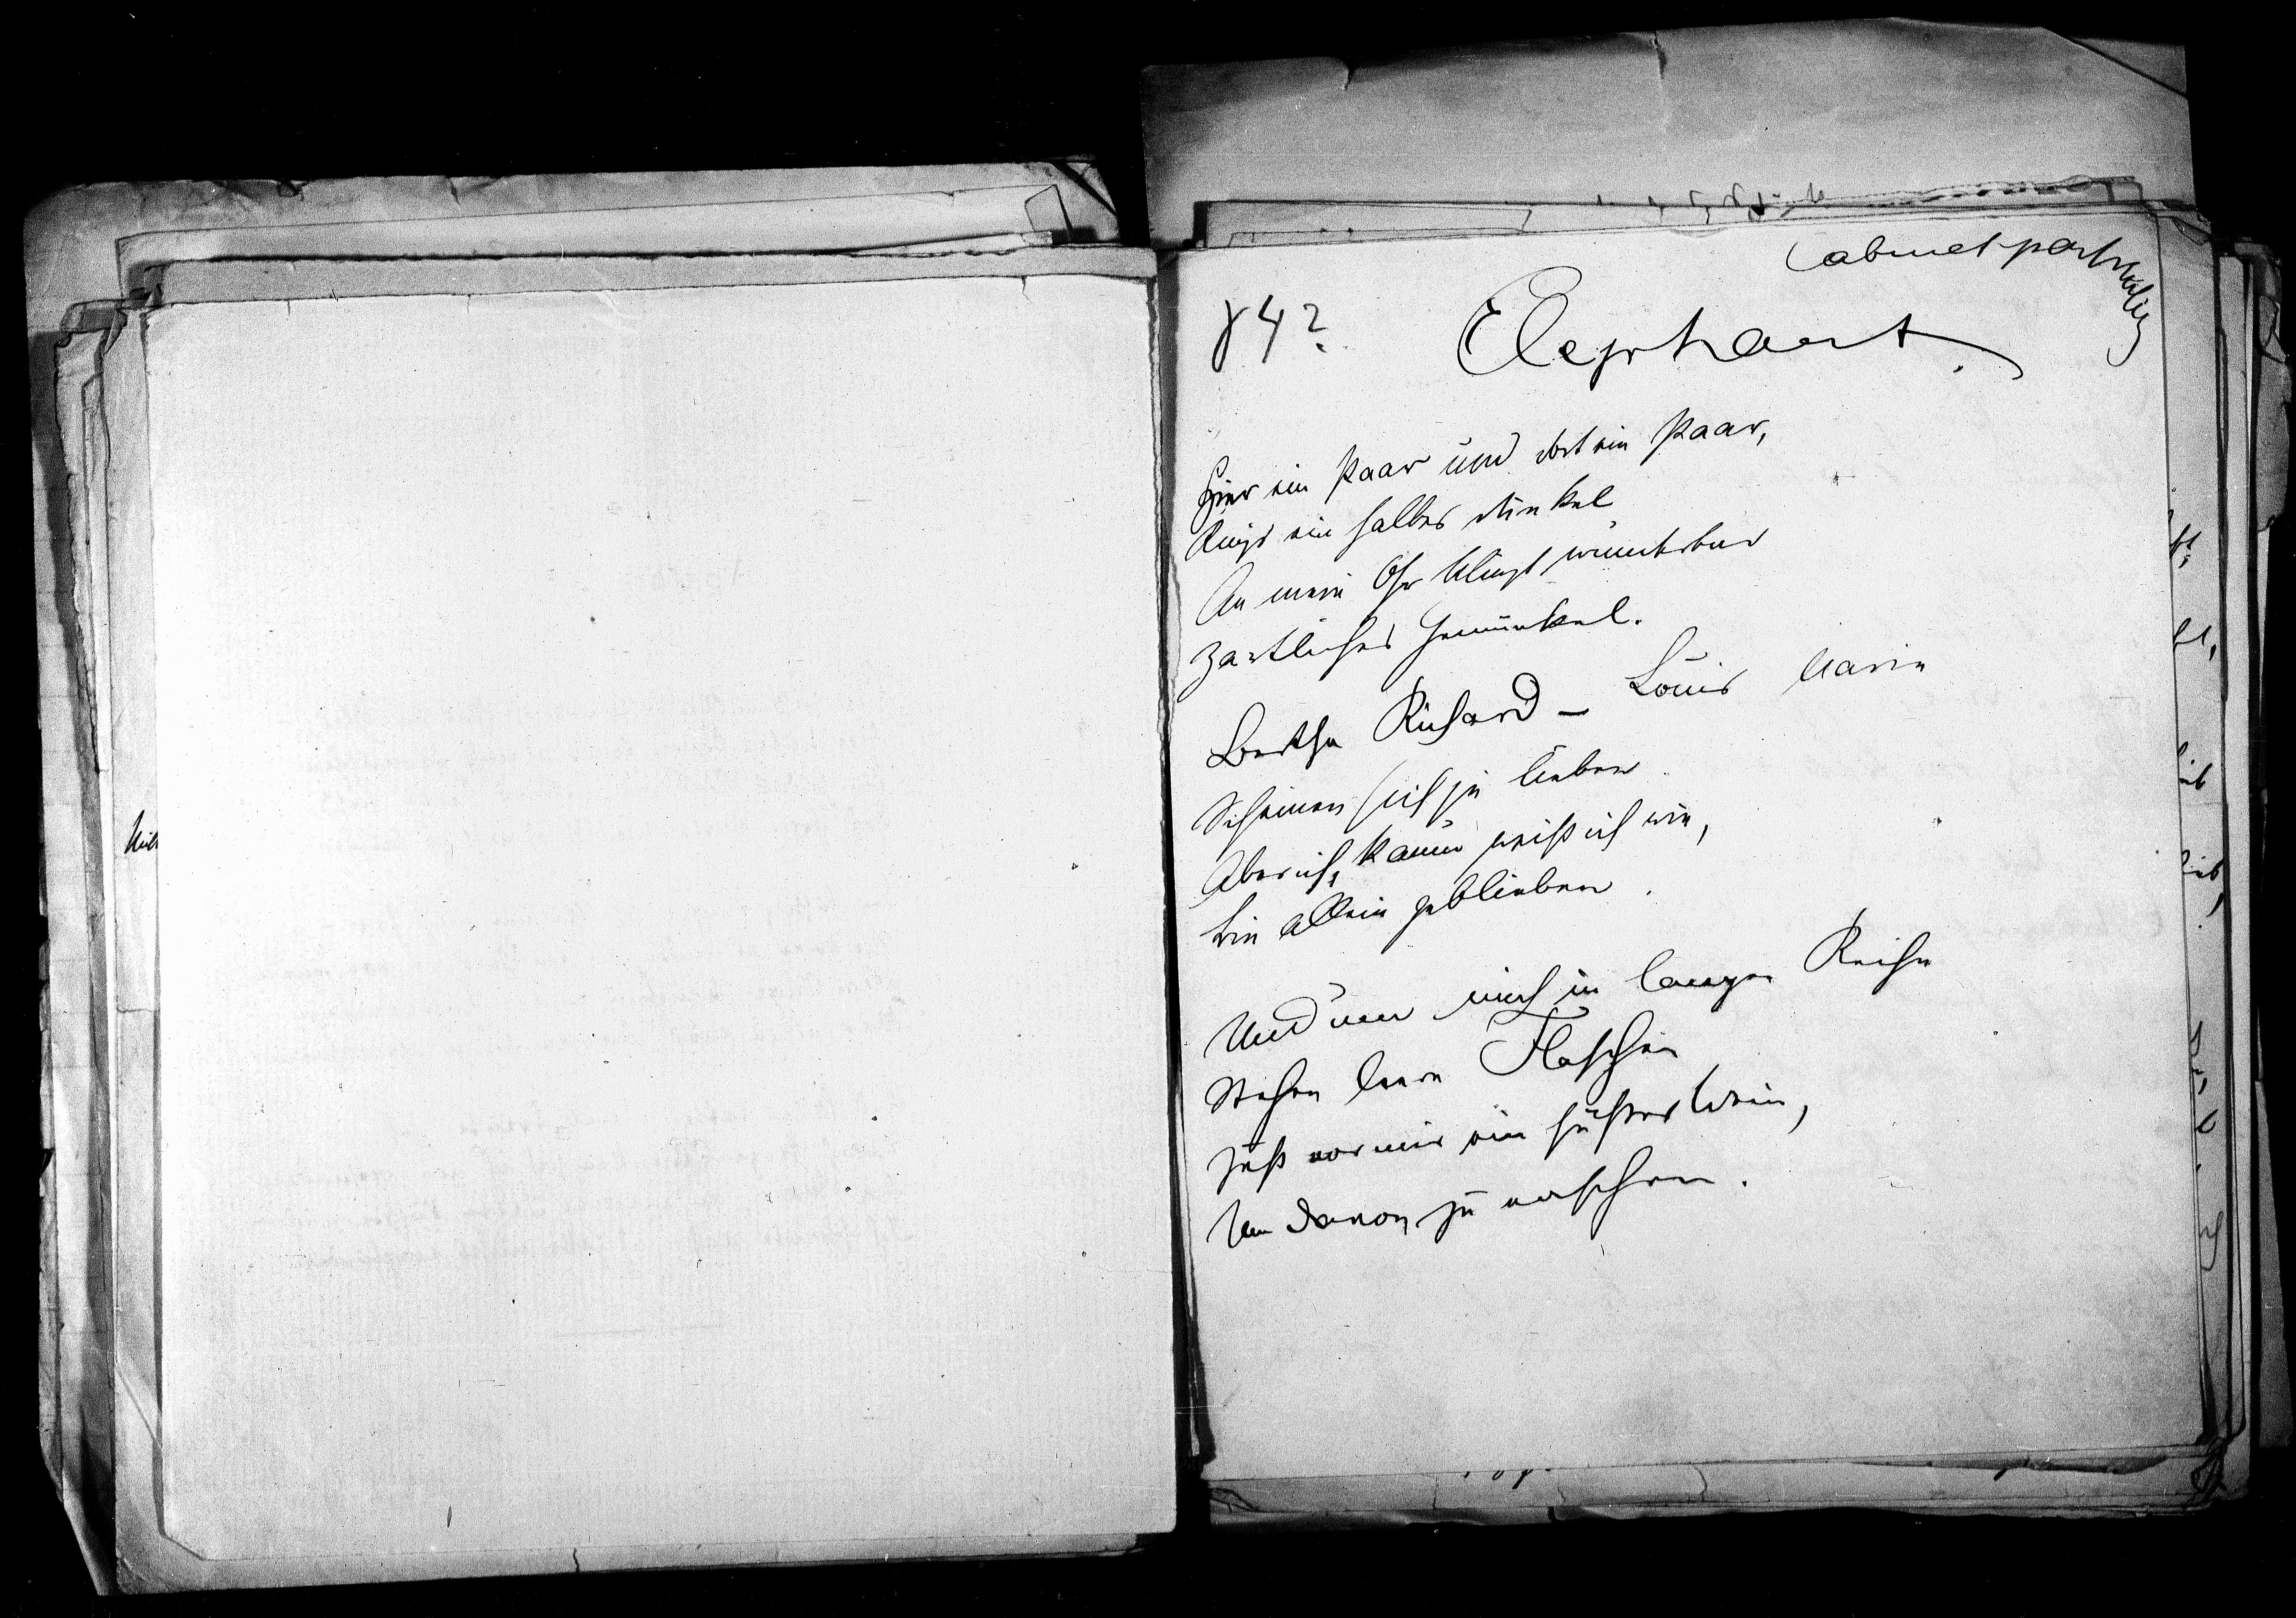 Cabinet portraits
84?
Elephant.
Hier ein Paar und dort ein Paar,
Rings ein halbes Dunkel
An mein Ohr klingt wunderbar
Zärtliches Gemunkel.
Bertha Richard – Louis Marie
Scheinen sich zu lieben
Aber ich, kaum weiß ich wie,
bin allein geblieben.
Und um mich in langer Reihe
Stehen leere Flaschen
vor mir ein süßer Wein,
Um davon zu naschen.